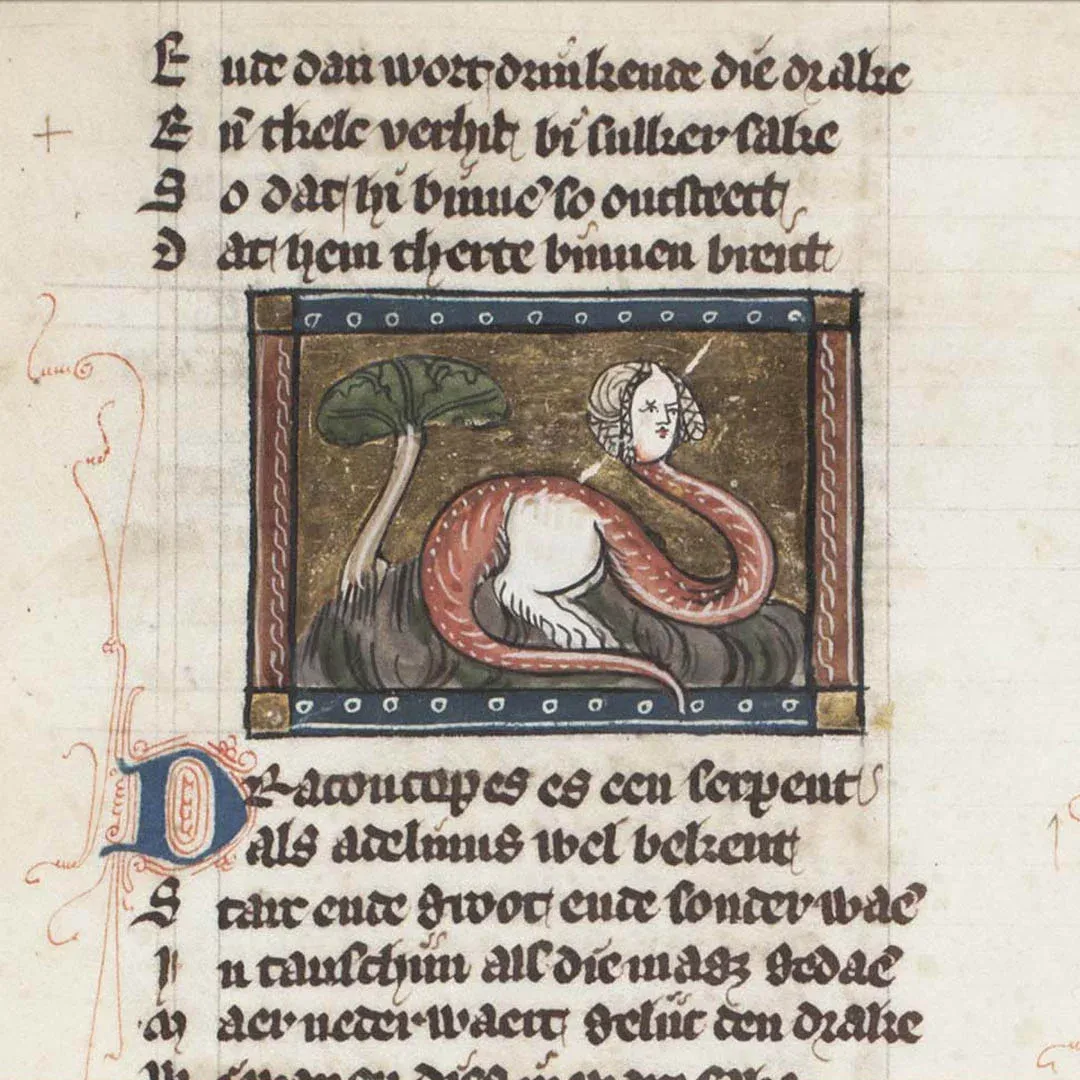 Ende dan wort drinkende die drake
En̄ tkele verhit bi sulker sake
So dat hi binnē so ontsteect
Dat hem therte binnen breict
Dracontopes es een serpent
als adelinus wel bekent
Starc ende groot ende sonder waē
In tanschijn als die magꝫ gedaē
Maer nederwaert gelijc den drake